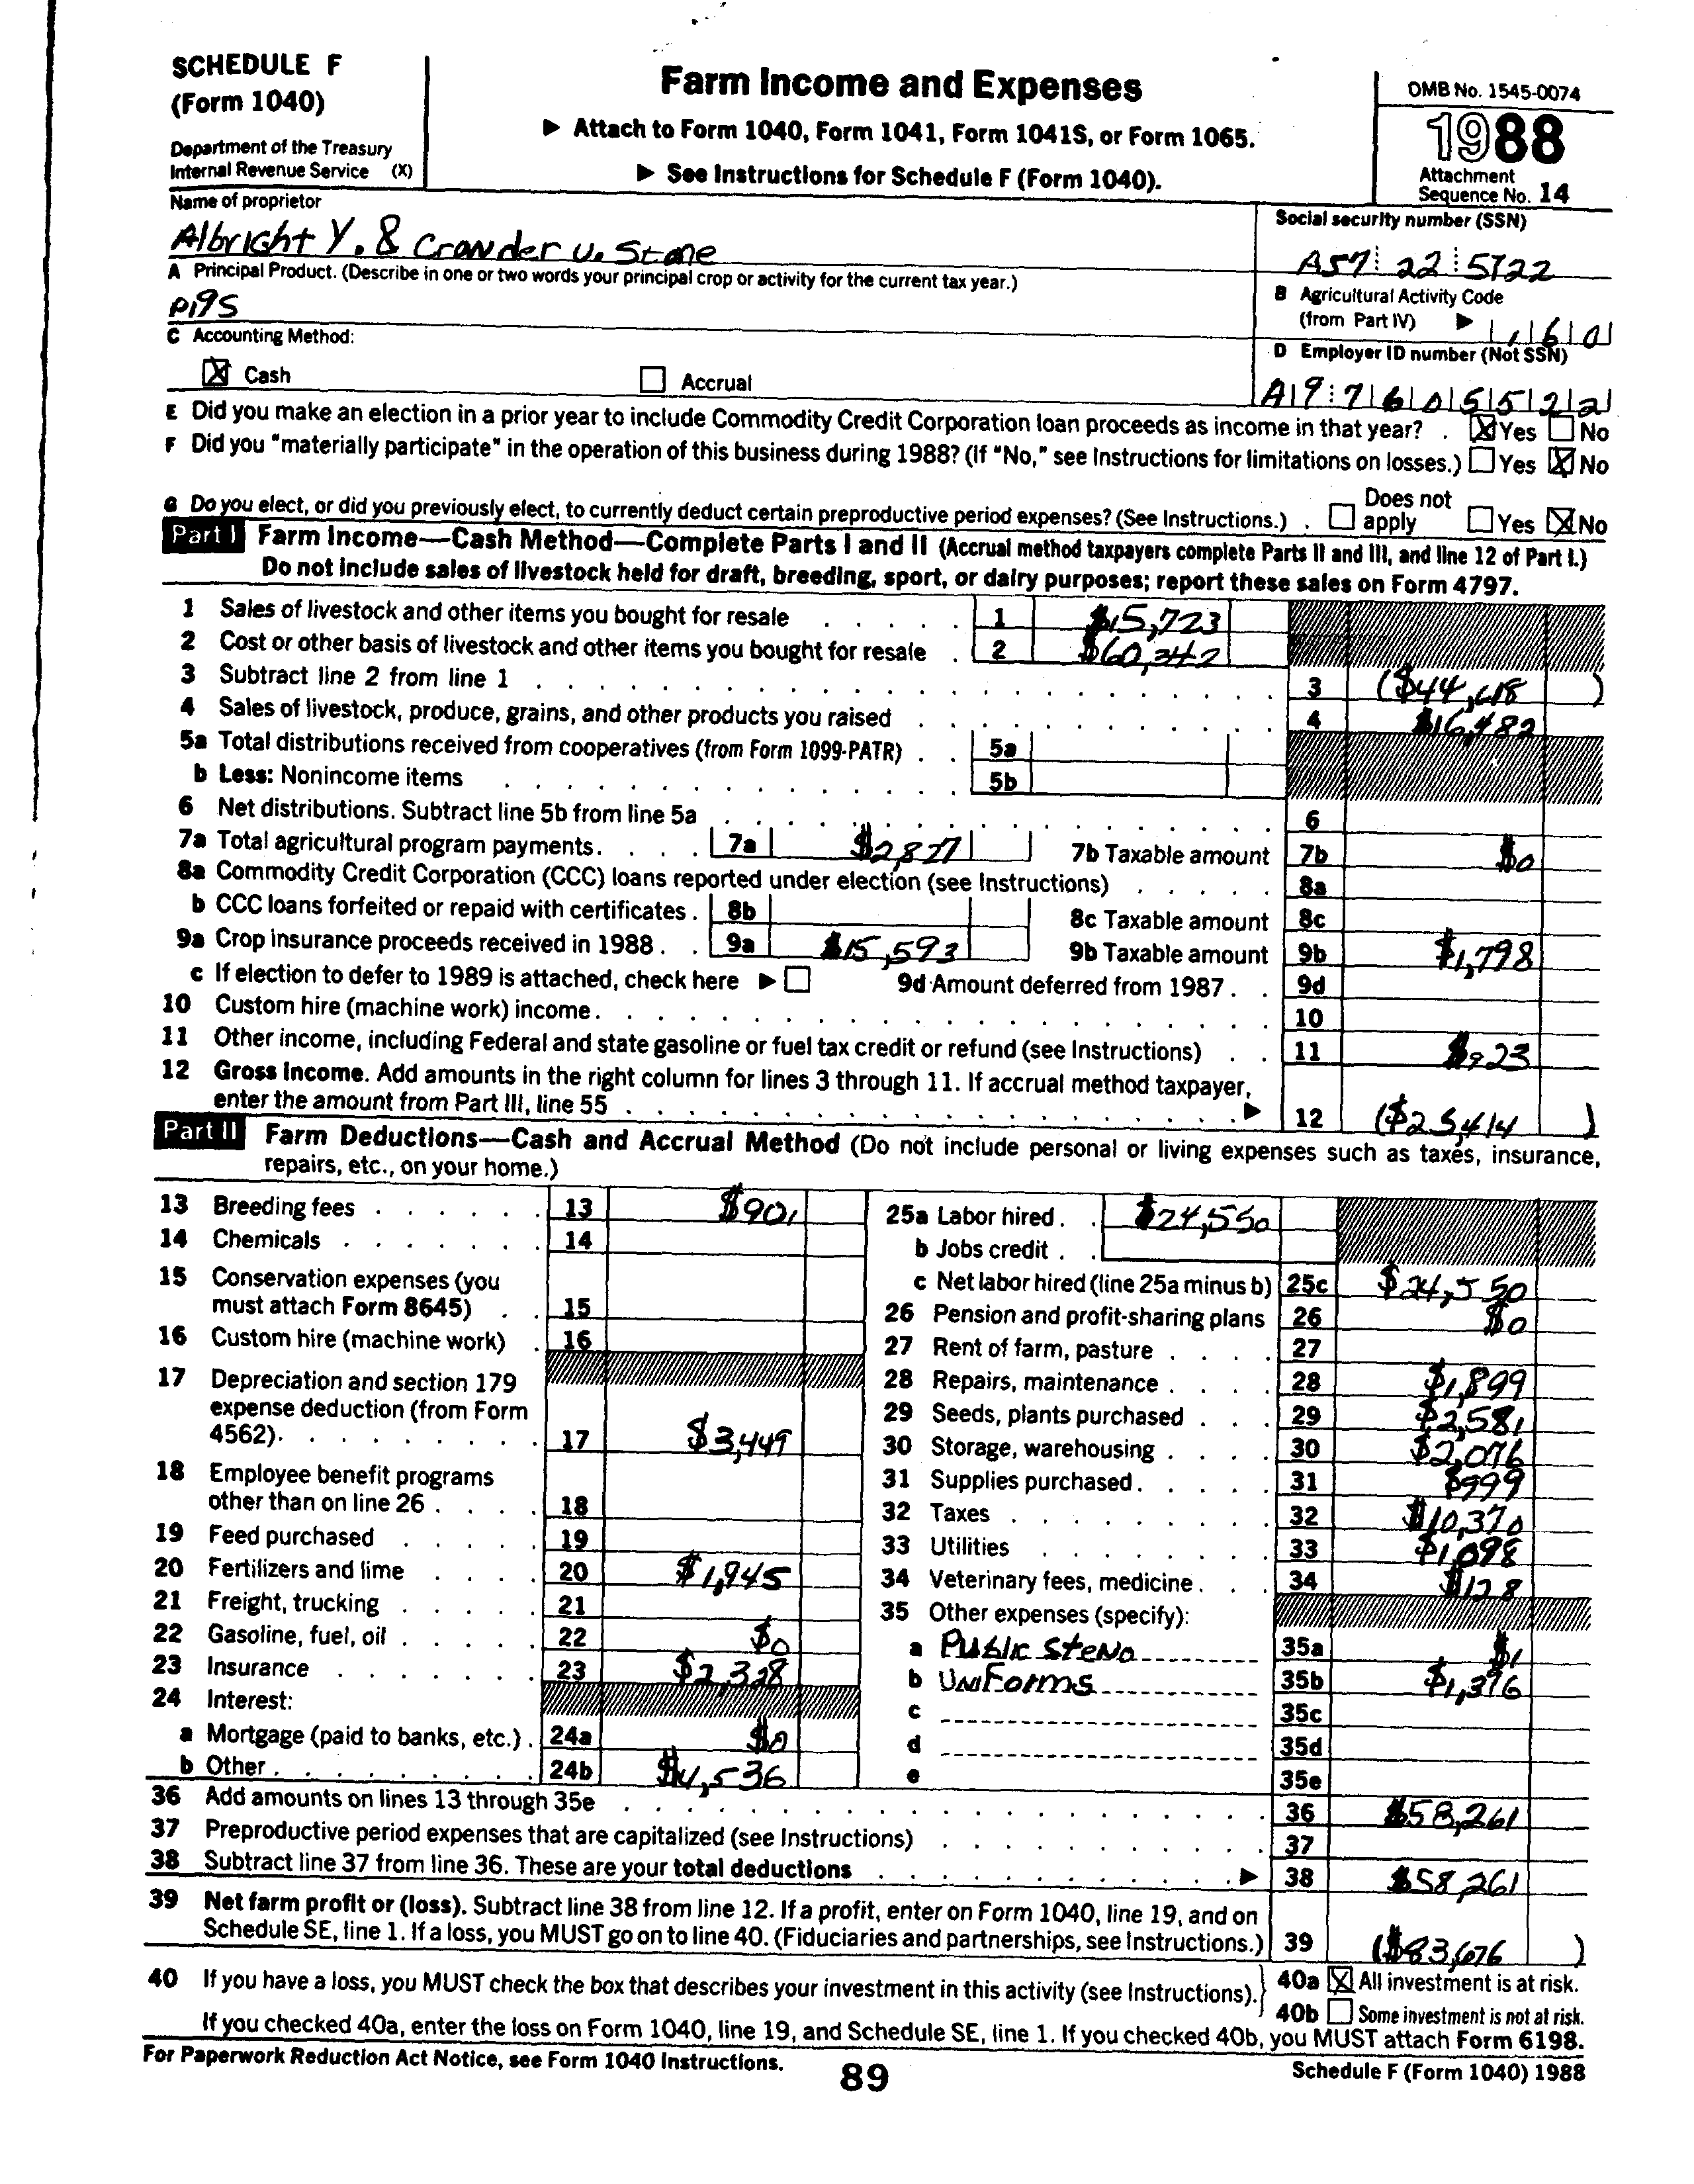 SCHEDULE F
(Form 1040)
Department of the Treasury
Internal Revenue Service (X)
Farm Income and Expenses
▶ Attach to Form 1040, Form 1041, Form 1041S, or Form 1065.
▶ See Instructions for Schedule F (Form 1040).
OMB No. 1545-0074
1988
Attachment
Sequence No. 14
Name of proprietor
Albright Y. & Crowder U. Stone
Social security number (SSN)
A57 22 5722
A Principal Product. (Describe in one or two words your principal crop or activity for the current tax year.)
pigs
B Agricultural Activity Code
(from Part IV) ▶ 160
C Accounting Method:
☒ Cash ☐ Accrual
D Employer ID number (Not SSN)
A9 7605522
E Did you make an election in a prior year to include Commodity Credit Corporation loan proceeds as income in that year? . ☒ Yes ☐ No
F Did you "materially participate" in the operation of this business during 1988? (If "No," see Instructions for limitations on losses.) ☐ Yes ☒ No
G Do you elect, or did you previously elect, to currently deduct certain preproductive period expenses? (See Instructions.) . ☐ Does not apply ☐ Yes ☒ No
Part I Farm Income—Cash Method—Complete Parts I and II (Accrual method taxpayers complete Parts II and III, and line 12 of Part I.)
Do not include sales of livestock held for draft, breeding, sport, or dairy purposes; report these sales on Form 4797.
1 Sales of livestock and other items you bought for resale 1 $15,723
2 Cost or other basis of livestock and other items you bought for resale 2 $60,342
3 Subtract line 2 from line 1 3 ($44,618)
4 Sales of livestock, produce, grains, and other products you raised 4 $16,482
5a Total distributions received from cooperatives (from Form 1099-PATR) 5a
b Less: Nonincome items 5b
6 Net distributions. Subtract line 5b from line 5a 6
7a Total agricultural program payments. 7a $2,827 7b Taxable amount 7b $0
8a Commodity Credit Corporation (CCC) loans reported under election (see Instructions) 8a
b CCC loans forfeited or repaid with certificates . 8b 8c Taxable amount 8c
9a Crop insurance proceeds received in 1988 . 9a $15,593 9b Taxable amount 9b $1,798
c If election to defer to 1989 is attached, check here ▶ ☐ 9d Amount deferred from 1987 . . 9d
10 Custom hire (machine work) income. 10
11 Other income, including Federal and state gasoline or fuel tax credit or refund (see Instructions) 11 $923
12 Gross income. Add amounts in the right column for lines 3 through 11. If accrual method taxpayer,
enter the amount from Part III, line 55 ▶ 12 ($25,414)
Part II Farm Deductions—Cash and Accrual Method (Do not include personal or living expenses such as taxes, insurance,
repairs, etc., on your home.)
13 Breeding fees 13 $901
14 Chemicals 14
15 Conservation expenses (you
must attach Form 8645) 15
16 Custom hire (machine work) 16
17 Depreciation and section 179
expense deduction (from Form
4562). 17 $3,449
18 Employee benefit programs
other than on line 26 18
19 Feed purchased 19
20 Fertilizers and lime 20 $1,945
21 Freight, trucking 21
22 Gasoline, fuel, oil 22 $0
23 Insurance 23 $2,328
24 Interest:
a Mortgage (paid to banks, etc.) . 24a $0
b Other 24b $4,536
25a Labor hired . $24,550
b Jobs credit .
c Net labor hired (line 25a minus b) 25c $24,550
26 Pension and profit-sharing plans 26 $0
27 Rent of farm, pasture 27
28 Repairs, maintenance 28 $1,899
29 Seeds, plants purchased 29 $2,581
30 Storage, warehousing 30 $2,076
31 Supplies purchased. 31 $999
32 Taxes 32 $10,370
33 Utilities 33 $1,098
34 Veterinary fees, medicine. 34 $128
35 Other expenses (specify):
a Public Steno 35a $1
b Uniforms 35b $1,396
c 35c
d 35d
e 35e
36 Add amounts on lines 13 through 35e 36 $58,261
37 Preproductive period expenses that are capitalized (see Instructions) 37
38 Subtract line 37 from line 36. These are your total deductions ▶ 38 $58,261
39 Net farm profit or (loss). Subtract line 38 from line 12. If a profit, enter on Form 1040, line 19, and on
Schedule SE, line 1. If a loss, you MUST go on to line 40. (Fiduciaries and partnerships, see Instructions.) 39 ($83,676)
40 If you have a loss, you MUST check the box that describes your investment in this activity (see Instructions). 40a ☒ All investment is at risk.
40b ☐ Some investment is not at risk.
If you checked 40a, enter the loss on Form 1040, line 19, and Schedule SE, line 1. If you checked 40b, you MUST attach Form 6198.
For Paperwork Reduction Act Notice, see Form 1040 Instructions.
89
Schedule F (Form 1040) 1988